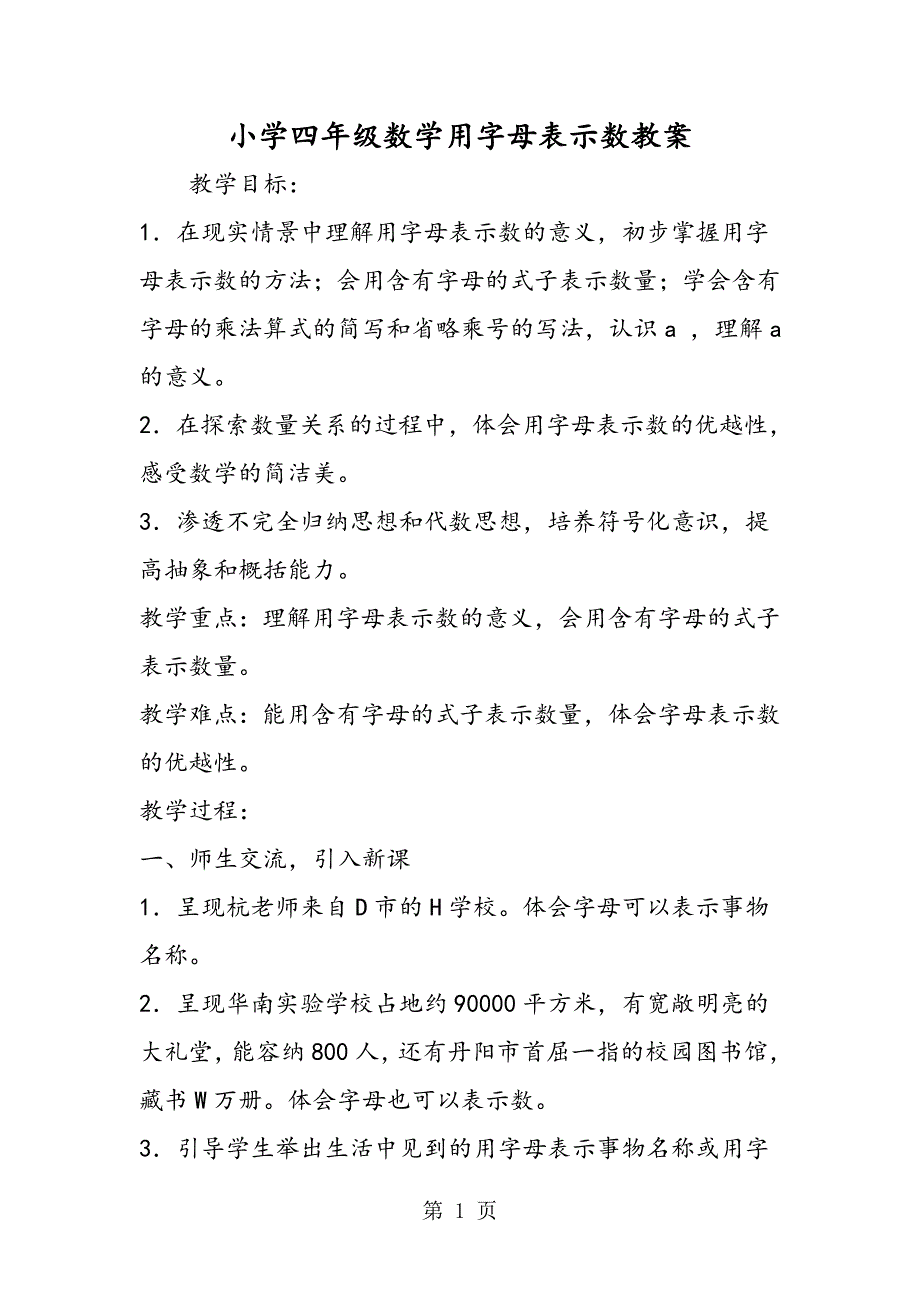 小学四年级数学用字母表示数教案
教学目标：
1．在现实情景中理解用字母表示数的意义，初步掌握用字
母表示数的方法；会用含有字母的式子表示数量；学会含有
字母的乘法算式的简写和省略乘号的写法，认识a ，理解a
的意义。
2．在探索数量关系的过程中，体会用字母表示数的优越性，
感受数学的简洁美。
3．渗透不完全归纳思想和代数思想，培养符号化意识，提
高抽象和概括能力。
教学重点：理解用字母表示数的意义，会用含有字母的式子
表示数量。
教学难点：能用含有字母的式子表示数量，体会字母表示数
的优越性。
教学过程：
一、师生交流，引入新课
1．呈现杭老师来自D市的H学校。体会字母可以表示事物
名称。
2．呈现华南实验学校占地约90000平方米，有宽敞明亮的
大礼堂，能容纳800人，还有丹阳市首屈一指的校园图书馆，
藏书W万册。体会字母也可以表示数。
3．引导学生举出生活中见到的用字母表示事物名称或用字
第 1 页